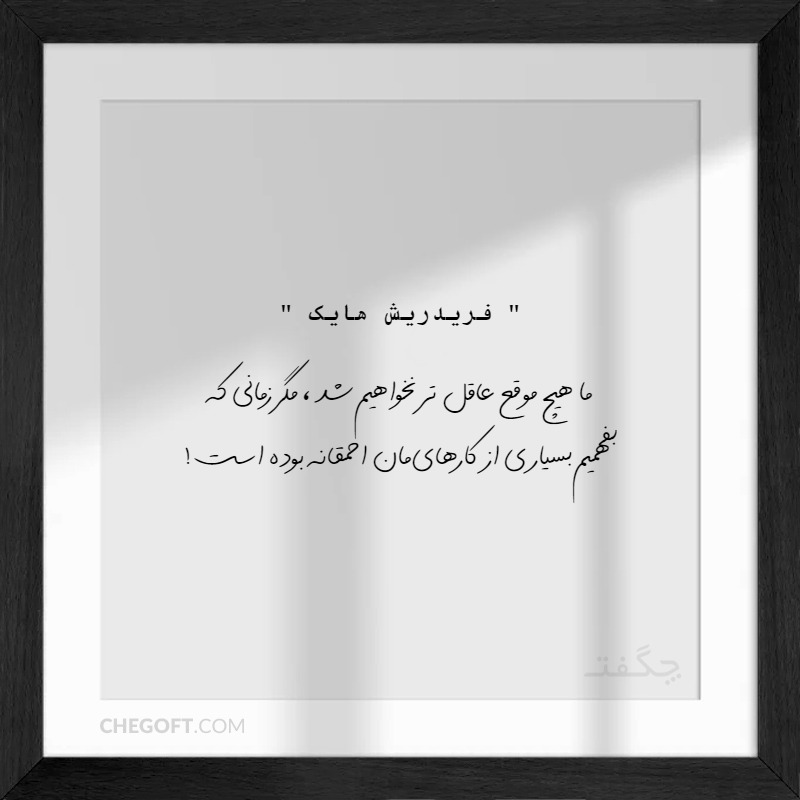 " فریدریش هایک "
ما هیچ موقع عاقل تر نخواهیم شد، مگر زمانی که
بفهمیم بسیاری از کارهای‌مان احمقانه بوده است!
چگفت
CHEGOFT.COM